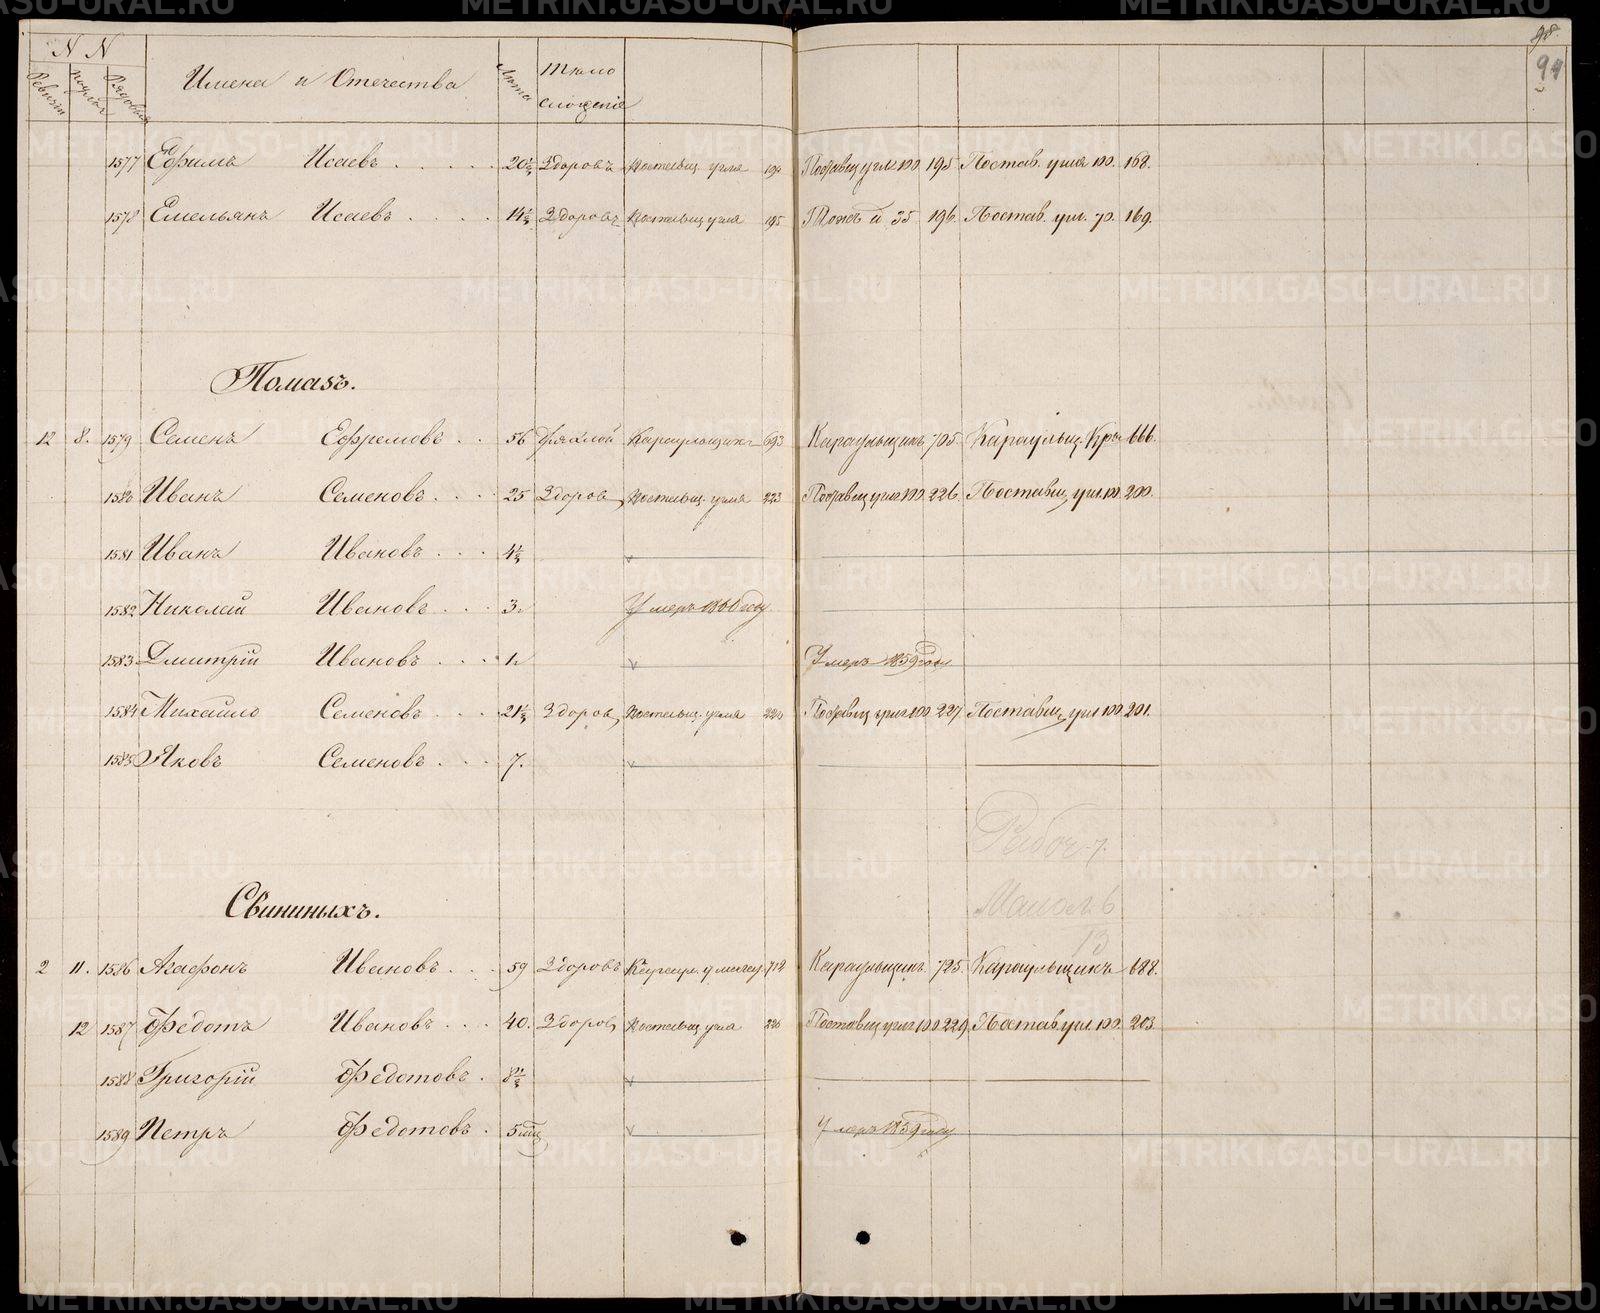 98.
94
N N
Ревизіи
Рядовые
Имена и Отечества
Лета
Тѣло
сложеніе
1577 Ефимъ Исаевъ 20½ Здоровъ Поставщ. угля 194 Поставщ угля 100 195 Постав. угля 100. 168.
1578 Емельянъ Исаевъ 14½ Здоровъ Поставщ угля 195 Тожъ 35 196. Постав. угл. 70. 169.
Помазъ.
12 8. 1579 Семенъ Ефремовъ 56 Дряхлой Караульщикъ 693 Караульщикъ 705. Караульщ. 666.
1580 Иванъ Семеновъ 25 Здоровъ Поставщ. угля 223 Поставщ угля 100. 226. Поставщ угл. 100 200.
1581 Иванъ Ивановъ 4½
1582 Николай Ивановъ 3. Умеръ году
1583 Дмитрій Ивановъ 1. Умеръ 1859 году
1584 Михайло Семеновъ 21½ Здоровъ Поставщ. угля Поставщ угля 100 227 Поставщ угл 100 201.
1585 Яковъ Семеновъ 7.
Рабоч. 7.
Малол. 6
13
Свининыхъ.
2 11. 1586 Агафонъ Ивановъ 59 Здоровъ Караул. 712 Караульщикъ 725. Караульщикъ 688.
12 1587 Федотъ Ивановъ 40. Здоровъ Поставщ угля Поставщ угля 100 229. Постав. угл. 100. 203.
1588 Григорій Федотовъ
1589 Петръ Федотовъ 5 мѣс. Умеръ 1859 году
METRIKI.GASO-URAL.RU